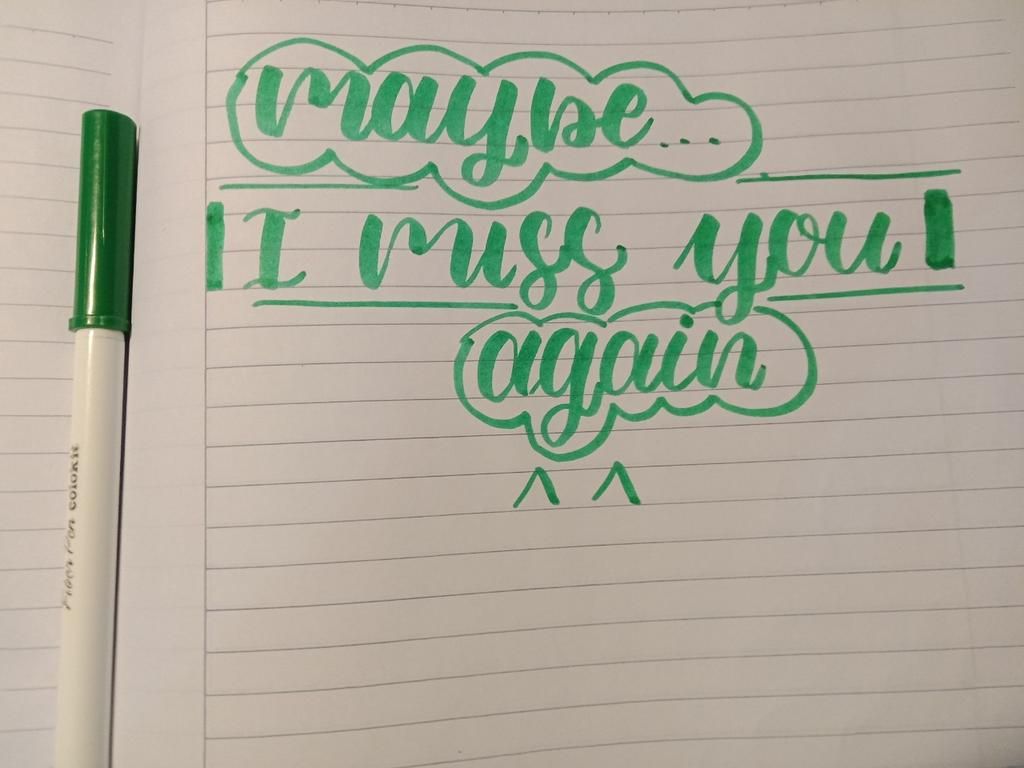 maybe...
I miss you
again
^ ^
Fiber Pen colokit